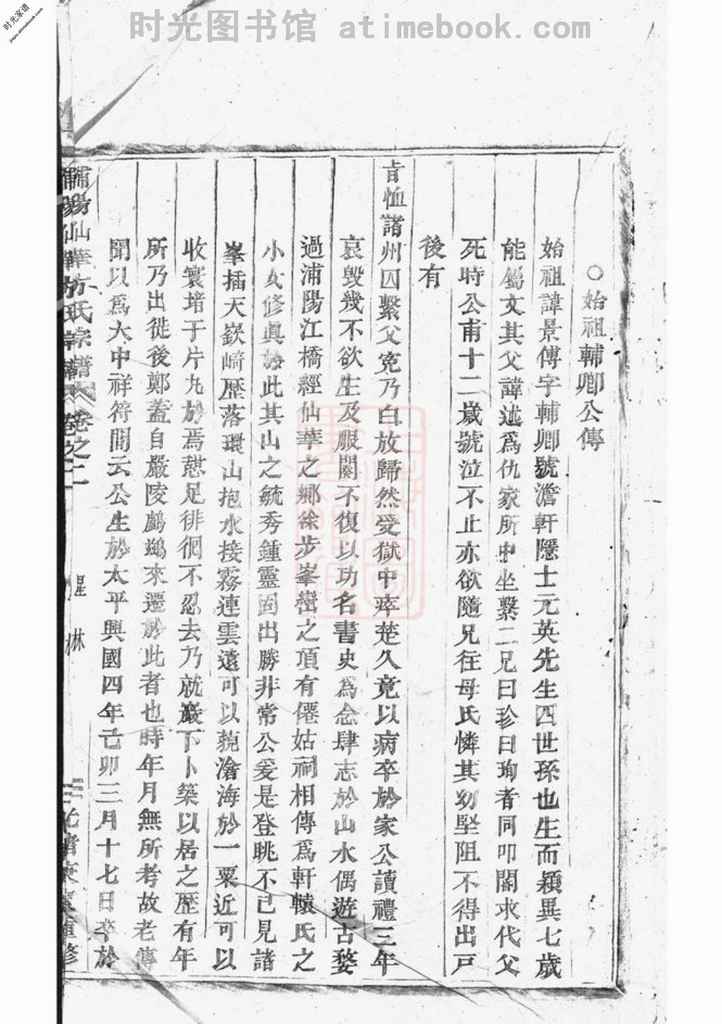 时光图书馆 atimebook.com
时光家谱
○始祖輔卿公傳
始祖諱景傅字輔卿號澹軒隱士元英先生四世孫也生而穎異七歲
能屬文其父諱述為仇家所中坐繫二兄曰珍曰珣者同叩閽求代父
死時公甫十二歲號泣不止亦欲隨兄往母氏憐其幼堅阻不得出戸
後有
旨恤諸州囚繫父寃乃白放歸然受獄中瘁楚久竟以病卒於家公讀禮三年
哀毀幾不欲生及服闋不復以功名書史為念肆志於山水偶遊古婺
過浦陽江橋經仙華之鄉徐步峯巒之頂有僊姑祠相傳為軒轅氏之
小女修眞於此其山之毓秀鍾靈固出勝非常公爰是登眺不已見諸
峯插天嶔崎歷落環山抱水接霧連雲遠可以藐滄海於一粟近可以
收寰堵于片九於焉憇足徘徊不忍去乃就巖下卜築以居之歷有年
所乃出徙後鄭蓋自嚴陵鸕鶿來遷於此者也時年月無所考故老傳
聞以為大中祥符間云公生於太平興國四年己卯三月十七日卒於
浦陽仙華方氏宗譜 卷之二